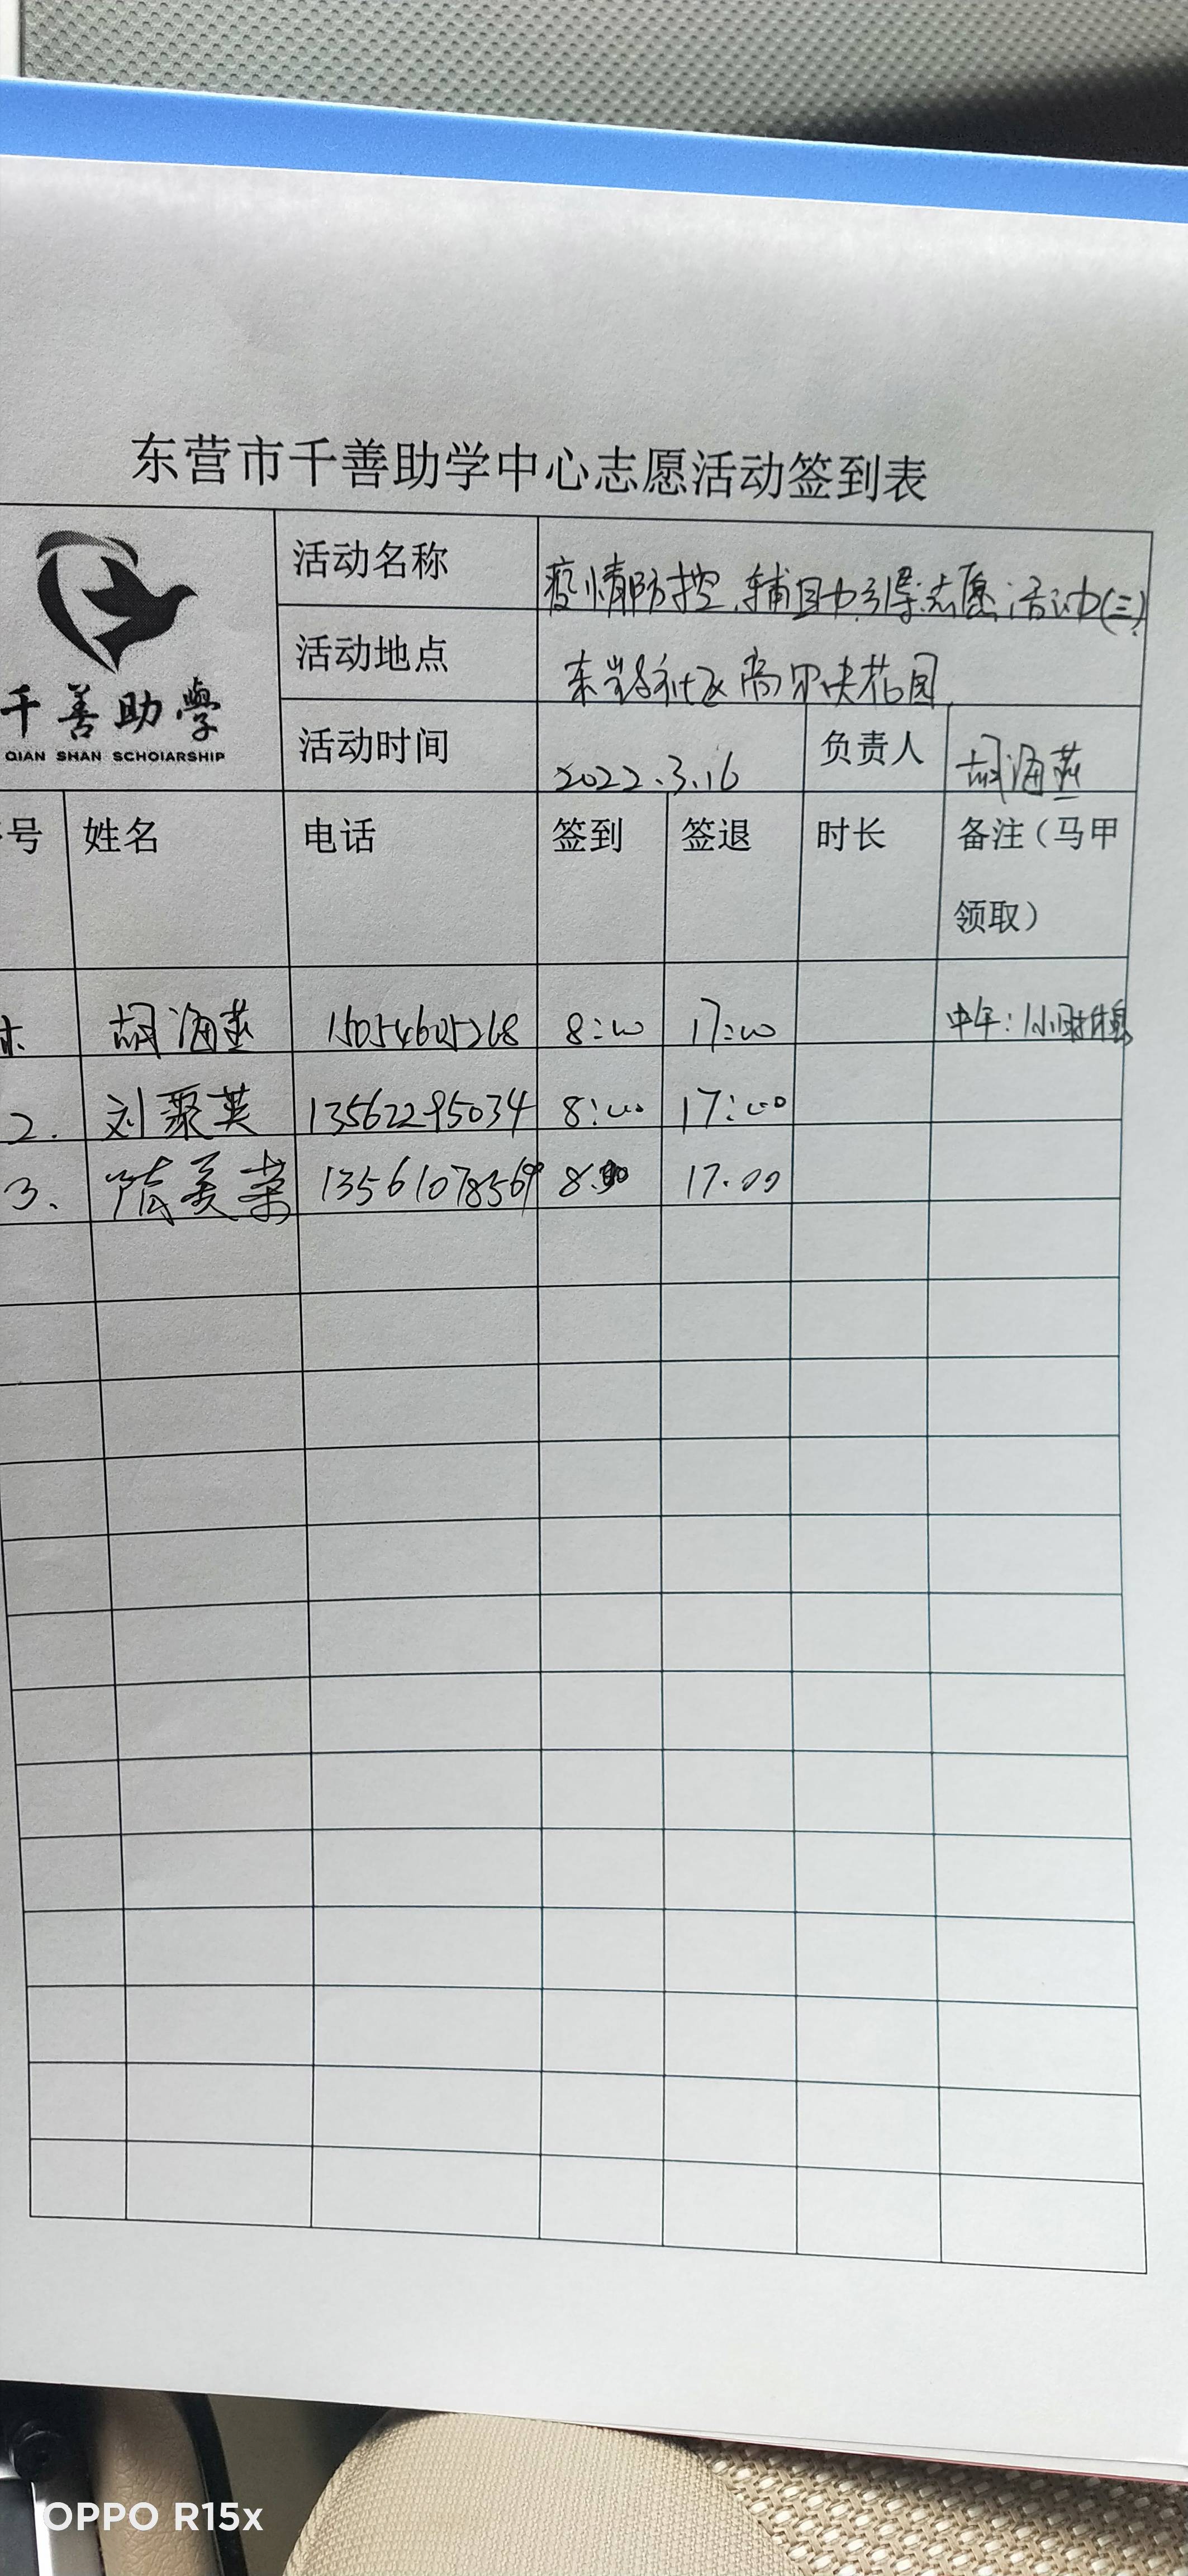 东营市千善助学中心志愿活动签到表
千善助學
QIAN SHAN SCHOIARSHIP
活动名称 疫情防控、辅助引导志愿活动(三)
活动地点 社区 花园
活动时间 2022.3.16 负责人 胡海燕
号 姓名 电话 签到 签退 时长 备注（马甲
领取）
胡海燕 15054605268 8:00 17:00 中午:1小时休息
2. 刘聚英 13562295034 8:00 17:00
3、 陈美荣 13561078569 17.00
OPPO R15x